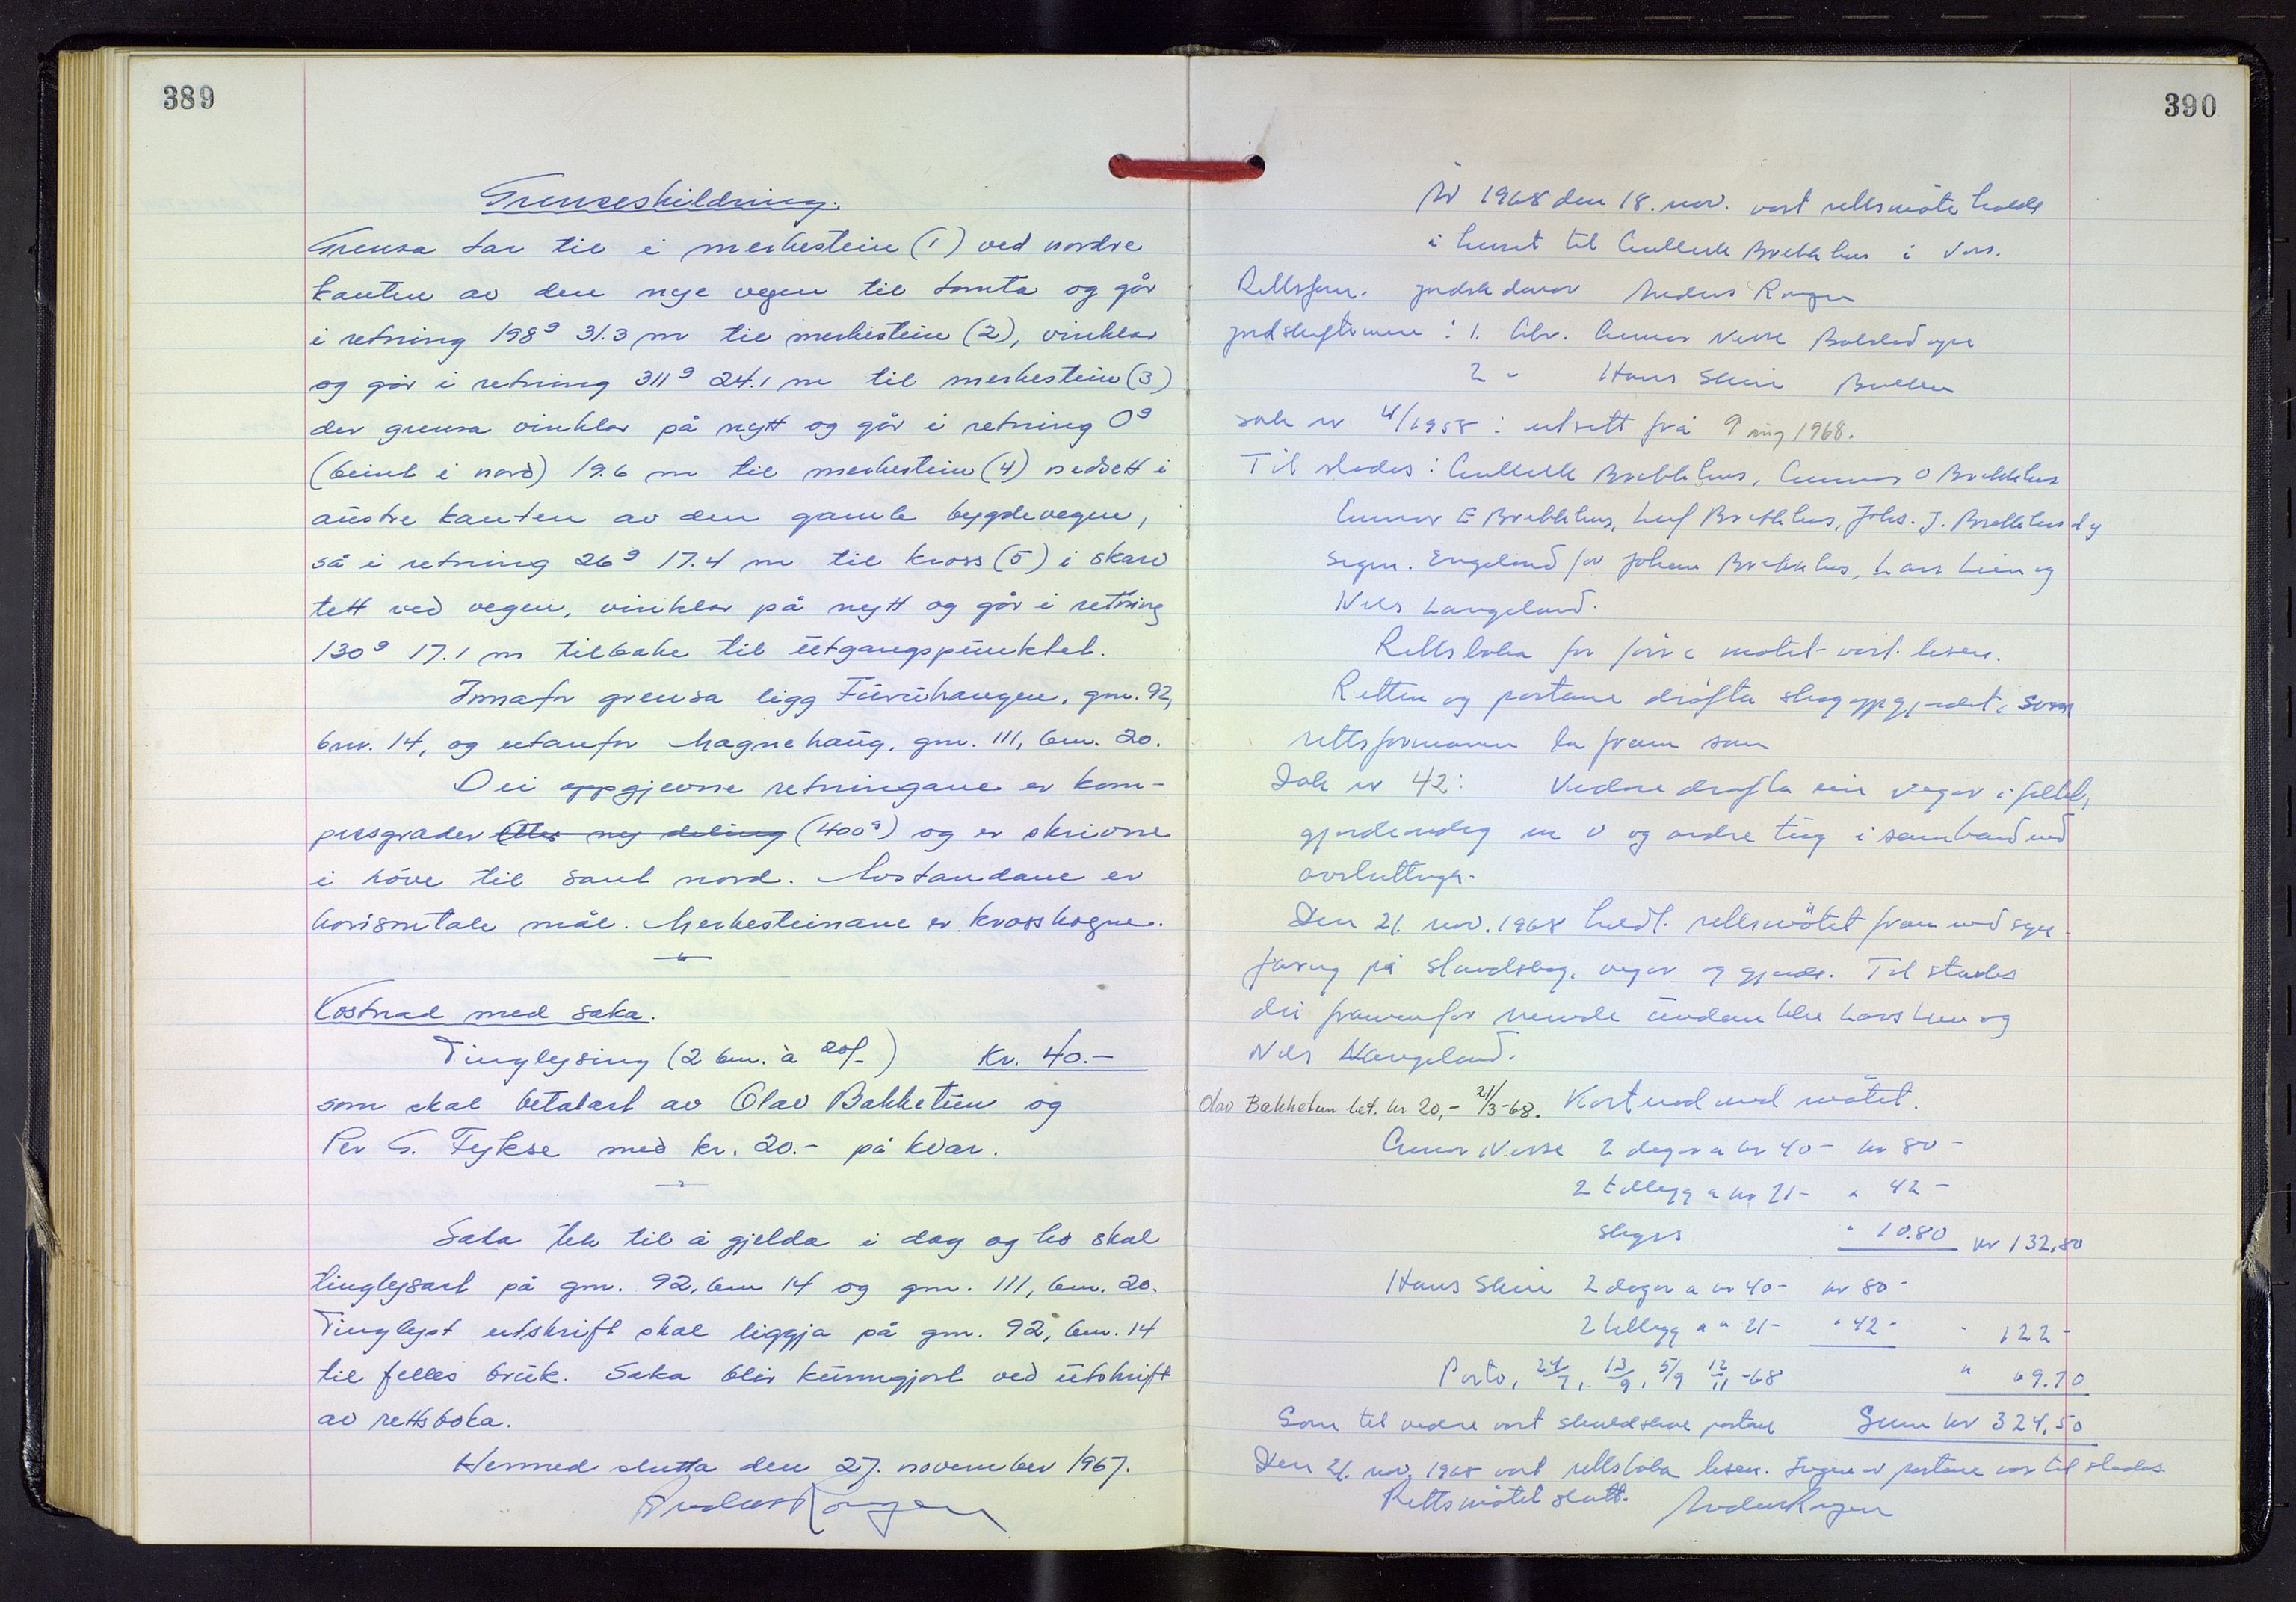 389
Grenseskildring.
Grensa tar til i merkestein (1) ved nordre
kanten av den nye vegen til tomta og går
i retning 198g 31.3 m til merkestein (2), vinklar
og går i retning 311g 24.1 m til merkestein (3)
der grensa vinklar på nytt og går i retning 0g
(beint i nord) 19.6 m til merkestein (4) nedsett i
austre kanten av den gamle bygdevegen,
så i retning 26g 17.4 m til kross (5) i skarv
tett ved vegen, vinklar på nytt og går i retning
130g 17.1 m tilbake til utgangspunktet.
Innafor grensa ligg Furuhaugen, gnr. 92,
bnr. 14, og utanfor Magnehaug, gnr. 111, bnr. 20.
Dei oppgjevne retningane er kom-
passgrader etter ny deling (400g) og er skrivne
i höve til sant nord. Avstandane er
horisontale mål. Merkesteinane er krosshogne.
Kostnad med saka.
Tinglysing (2 bnr. à 20/-) Kr. 40.-
som skal betalast av Olav Bakketun og
Per G. Fykse med kr. 20.- på kvar.
Saka tek til å gjelda i dag og ho skal
tinglysast på gnr. 92, bnr 14 og gnr. 111, bnr. 20.
Tinglyst utskrift skal liggja på gnr. 92, bnr. 14
til felles bruk. Saka blir kunngjort ved utskrift
av rettsboka.
Hermed slutta den 27. november 1967.
390
År 1968 den 18. nov. vart rettsmöte halde
i huset til Brekkhus i Voss.
Rettsform. jordskdomar Anders
jordskiftemenn: 1. Gunnar Nesse
2 " Hans
sak nr 4/1958: utsett frå 9 aug 1968.
Til stades: Brekkhus, Gunnar O Brekkhus
Gunnar E Brekkhus, Leif Brekkhus, Johs. J. Brekkhus
Engeland for Johan Brekkhus, Lars Lien og
Nils Langeland.
Rettsboka for förre mötet vart lesen.
Retten og partane dröfta skogoppgjeret, som
rettsformannen la fram som
Dok nr 42: Vidare dröfta ein vegar i feltet,
gjerde og andre ting i samband med
avsluttinga.
Den 21. nov. 1968 heldt rettsmötet fram med syn-
faring på vegar og gjerde. Til stades
dei framanfor nemde undan Lars Lien og
Nils Langeland.
Olav Bakketun bet. kr 20,- 21/3-68. Kostnad med mötet.
Gunnar Nesse 2 dagar a kr 40- kr 80-
2 tillegg a kr 21- " 42-
skyss " 10.80 kr 132,80
Hans 2 dagar a kr 40- kr 80-
2 tillegg a " 21- " 42- " 122-
Porto, 12/11 -68 " 69.70
Som til vidare vart partane Sum kr 324,50
Den 21. nov. 1968 vart rettsboka lesen. Ingen av partane var til stades.
Rettsmötet slutt.